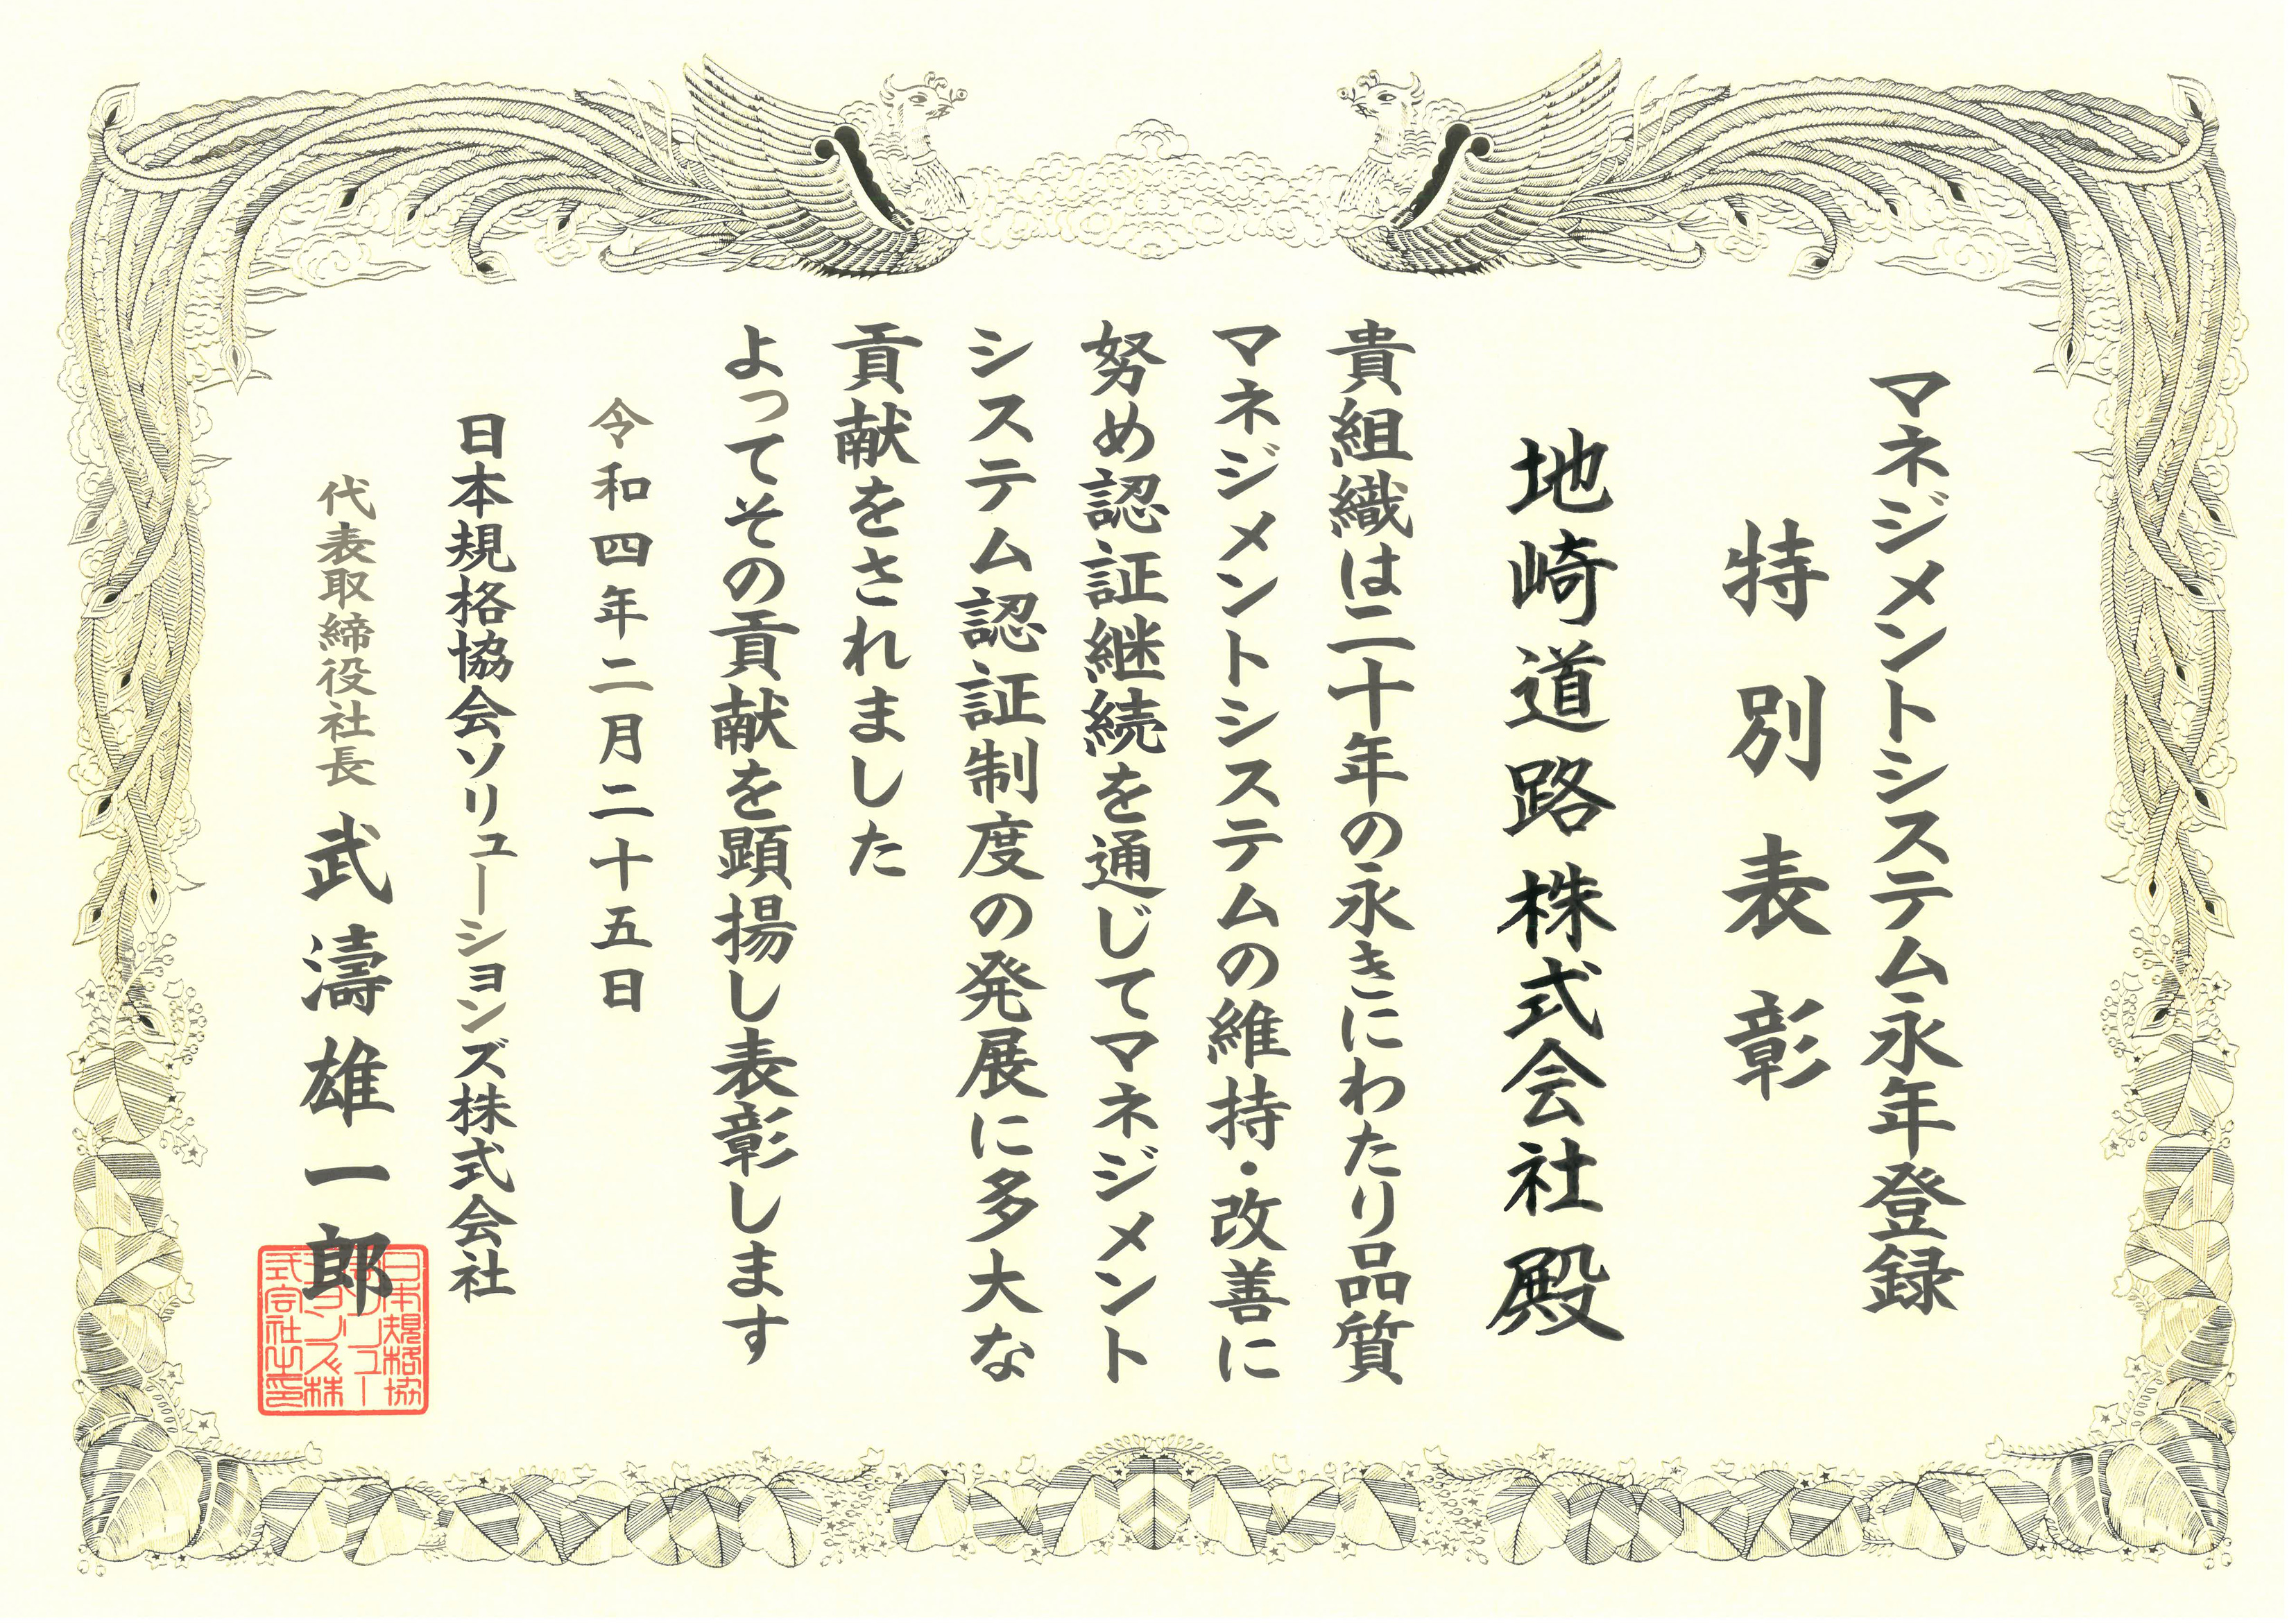 マネジメントシステム永年登録
特別表彰
地崎道路株式会社殿
貴組織は二十年の永きにわたり品質
マネジメントシステムの維持・改善に
努め認証継続を通じてマネジメント
システム認証制度の発展に多大な
貢献をされました
よってその貢献を顕揚し表彰します
令和四年二月二十五日
日本規格協会ソリューションズ株式会社
代表取締役社長 武濤雄一郎
日本規格協
会ソリュー
ションズ株
式会社之印